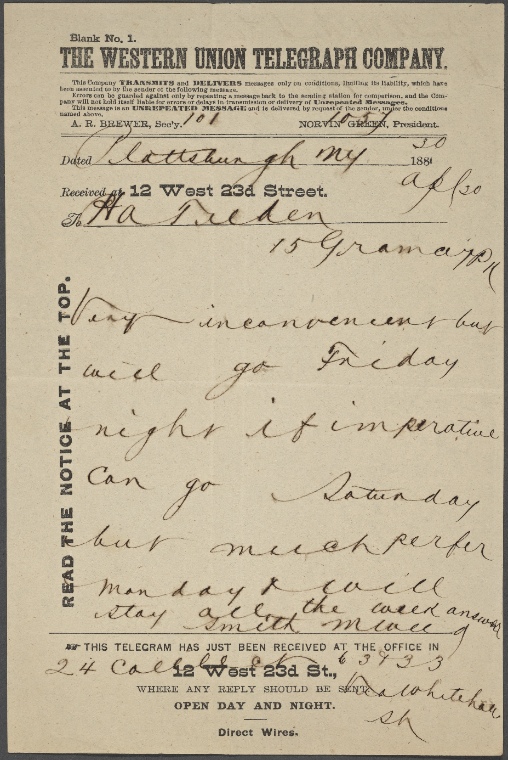 Blank No. 1.
THE WESTERN UNION TELEGRAPH COMPANY.
This Company TRANSMITS and DELIVERS messages only on conditions, limiting its liability, which have
been assented to by the sender of the following message.
Errors can be guarded against only by repeating a message back to the sending station for comparison, and the Com-
pany will not hold itself liable for errors or delays in transmission or delivery of Unrepeated Messages.
This message is an UNREPEATED MESSAGE and is delivered by request of the sender, under the conditions
named above.
A. R. BREWER, Sec'y. 101 NORVIN GREEN, President.
Dated Plattsburgh NY 188
30
Received at 12 West 23d Street. Apl 20
To
Tilden
15 Gramacy Pk
READ THE NOTICE AT THE TOP.
Very inconvenient but
will go Friday
night if imperative
Can go Saturday
but much perfer
Monday & will
stay all the week answer
Smith M Weed
THIS TELEGRAM HAS JUST BEEN RECEIVED AT THE OFFICE IN
24 Collect
12 West 23d St.,
WHERE ANY REPLY SHOULD BE SENT.
via Whitehall
OPEN DAY AND NIGHT.
Direct Wires.